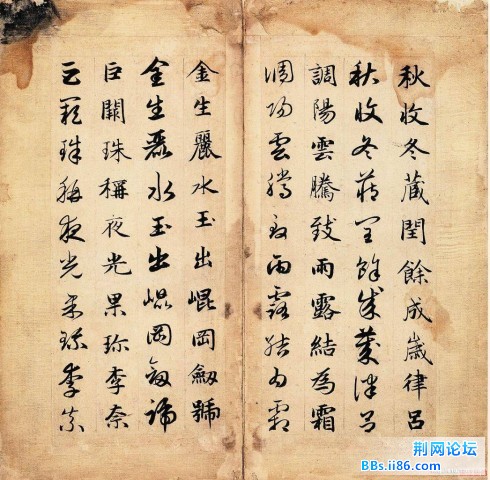 秋收冬藏閏餘成歲律呂
秋收冬藏閏餘成歲律呂
調陽雲騰致雨露結為霜
調陽雲騰致雨露結為霜
金生麗水玉出崐岡劒號
金生麗水玉出崐岡劒號
巨闕珠稱夜光果珍李柰
巨闕珠稱夜光果珍李柰
荆网论坛
BBs.ii86.com